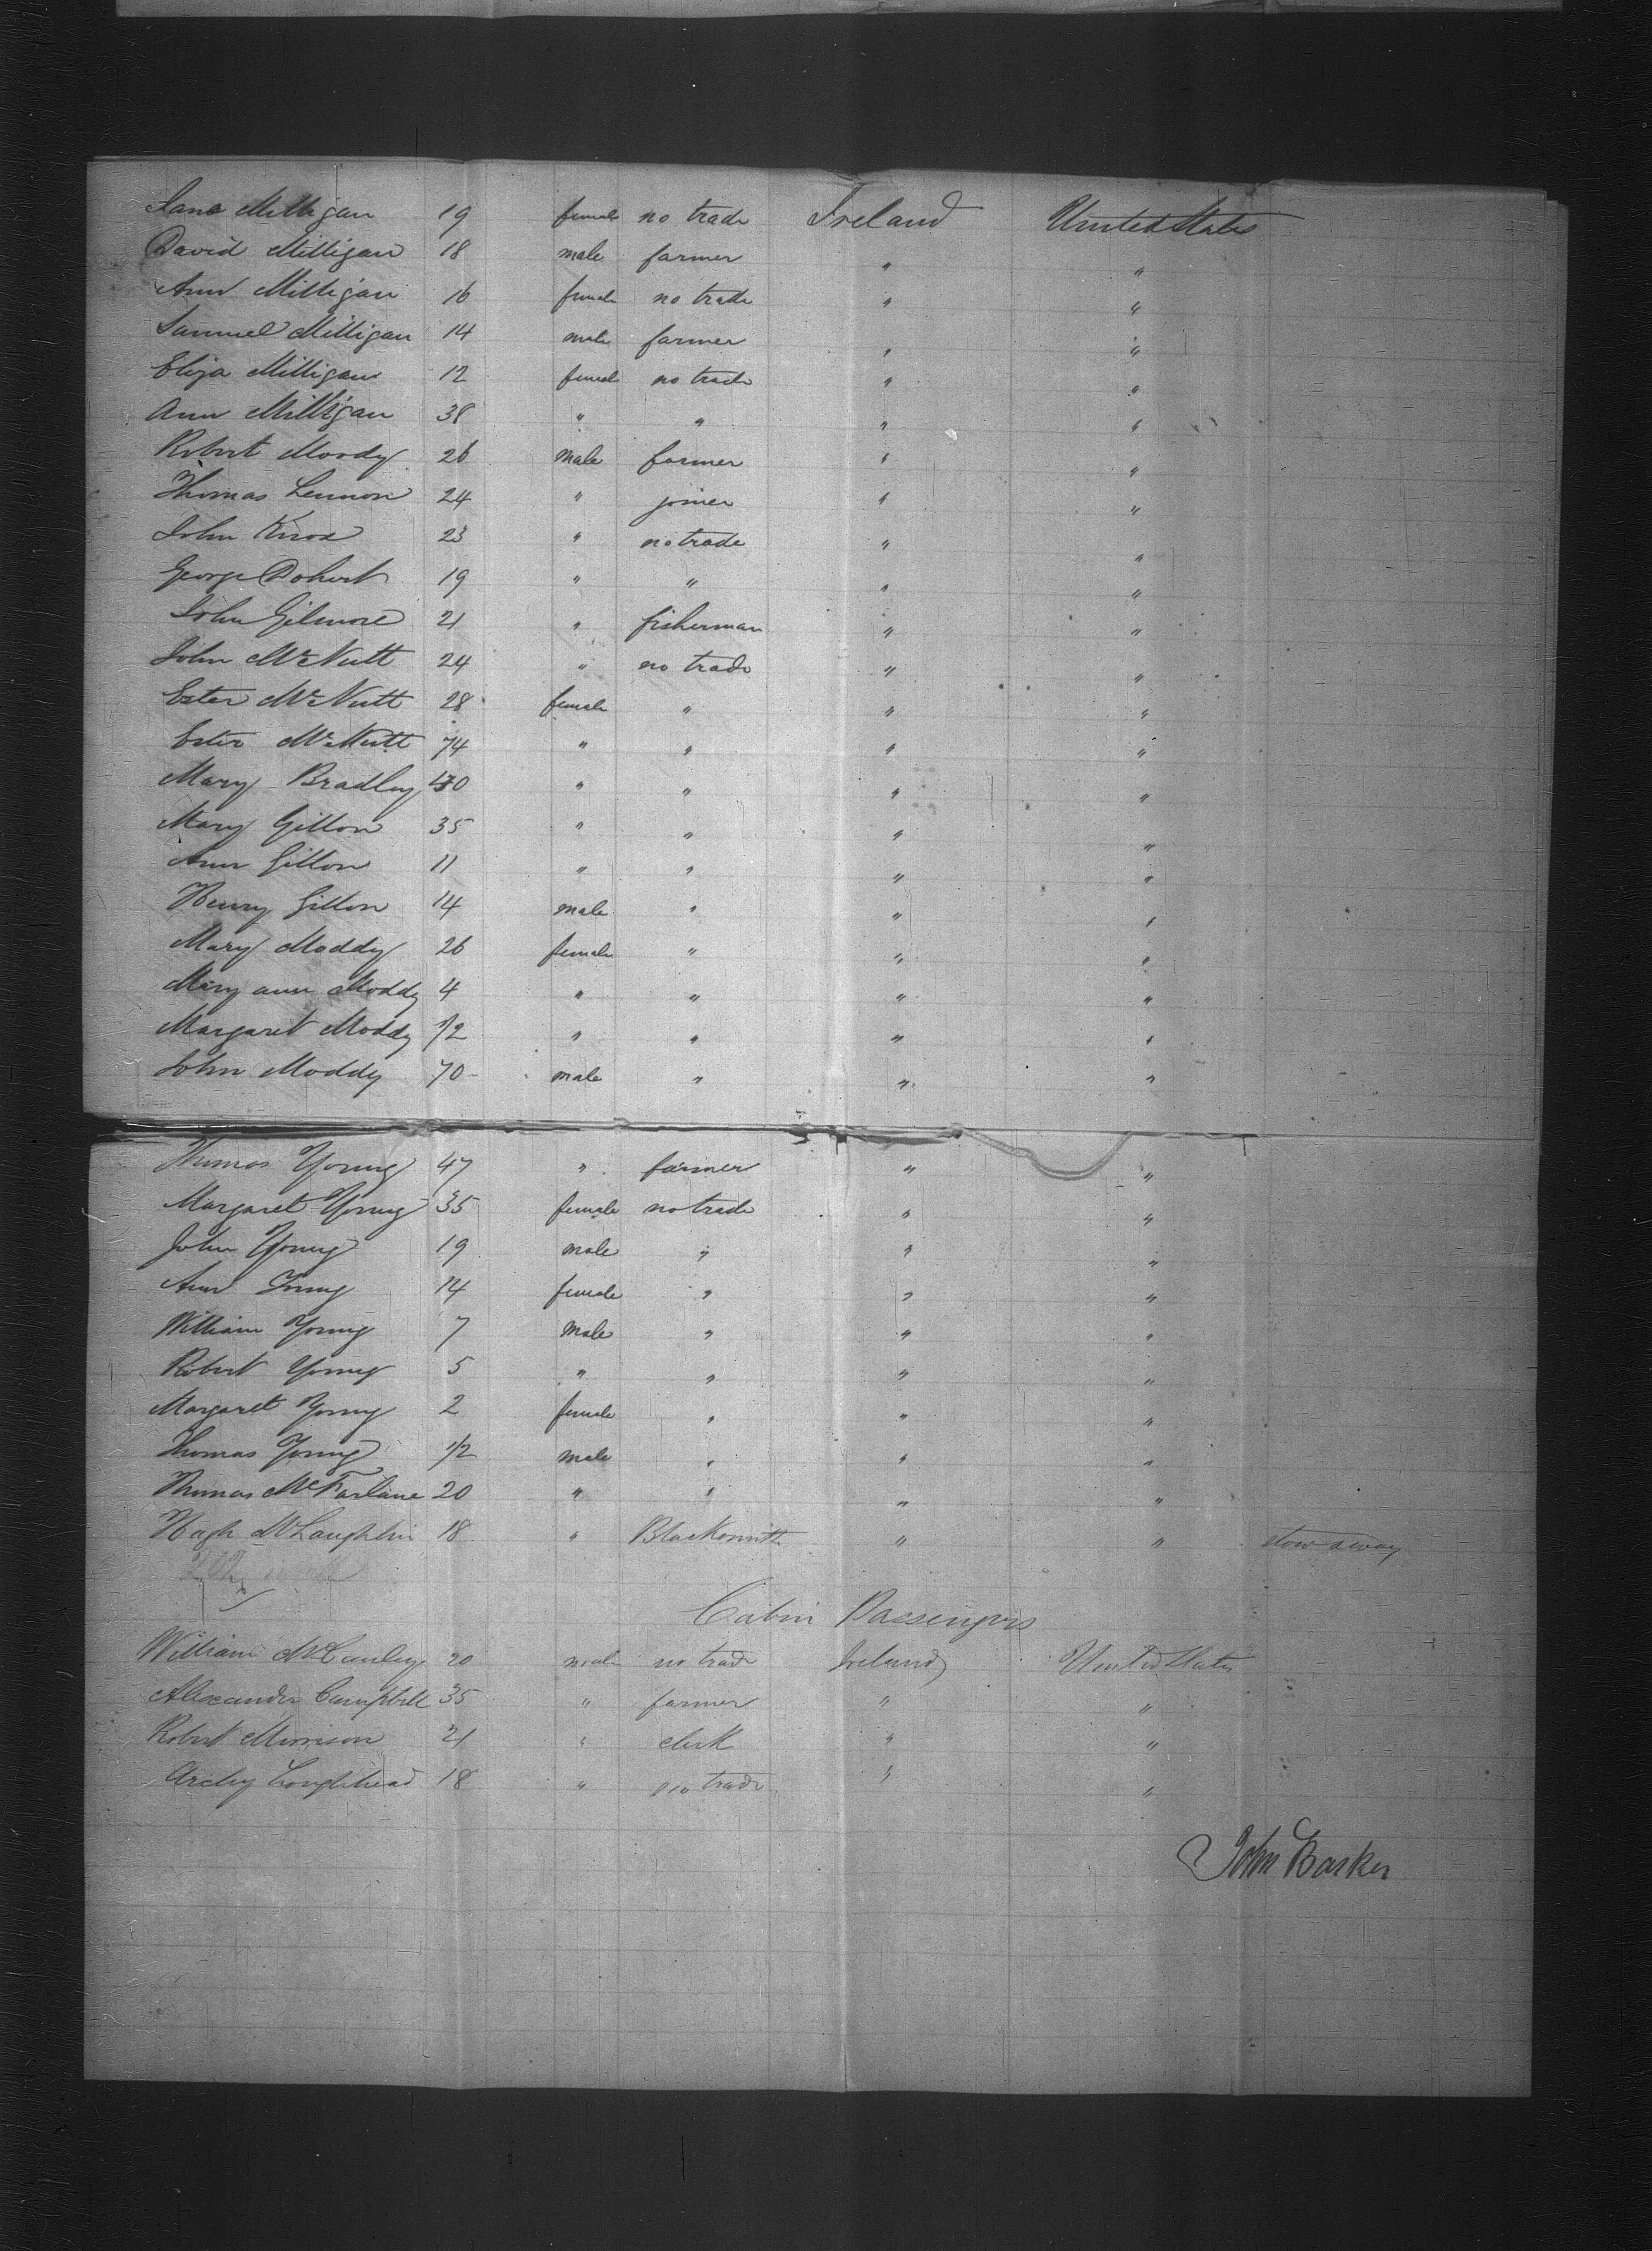 Jane Milligan 19 female no trade Ireland United States
David Milligan 18 male farmer " "
Ann Milligan 16 female no trade " "
Samuel Milligan 14 male farmer " "
Eliza Milligan 12 female no trade " "
Ann Milligan 38 " " " "
Robert Moody 26 male farmer " "
Thomas Lennon 24 " joiner " "
John Knox 23 " no trade " "
George Dohert 19 " " " "
John Gilmore 21 " fisherman " "
John McNutt 24 " no trade " "
Ester McNutt 28 female " " "
Ester McNutt 74 " " " "
Mary Bradley " " " "
Mary Gillon 35 " " " "
Ann Gillon 11 " " " "
Henry Gillon 14 male " " "
Mary Moddy 26 female " " "
Mary ann Moddy 4 " " " "
Margaret Moddy 1/2 " " " "
John Moddy 70 male " " "
Thomas Young 47 " farmer " "
Margaret Young 35 female no trade " "
John Young 19 male " " "
Ann Young 14 female " " "
William Young 7 male " " "
Robert Young 5 " " " "
Margaret Young 2 female " " "
Thomas Young 1/2 male " " "
Thomas McFarlane 20 " " " "
Hugh McLaughlin 18 " Blacksmith " " stow away
Cabin Passengers
William McCauley 20 male no trade Ireland United States
Alexander Campbell 35 " farmer " "
Robert Morrison 21 " clerk " "
Archy Loughhead 18 " no trade " "
John Barker